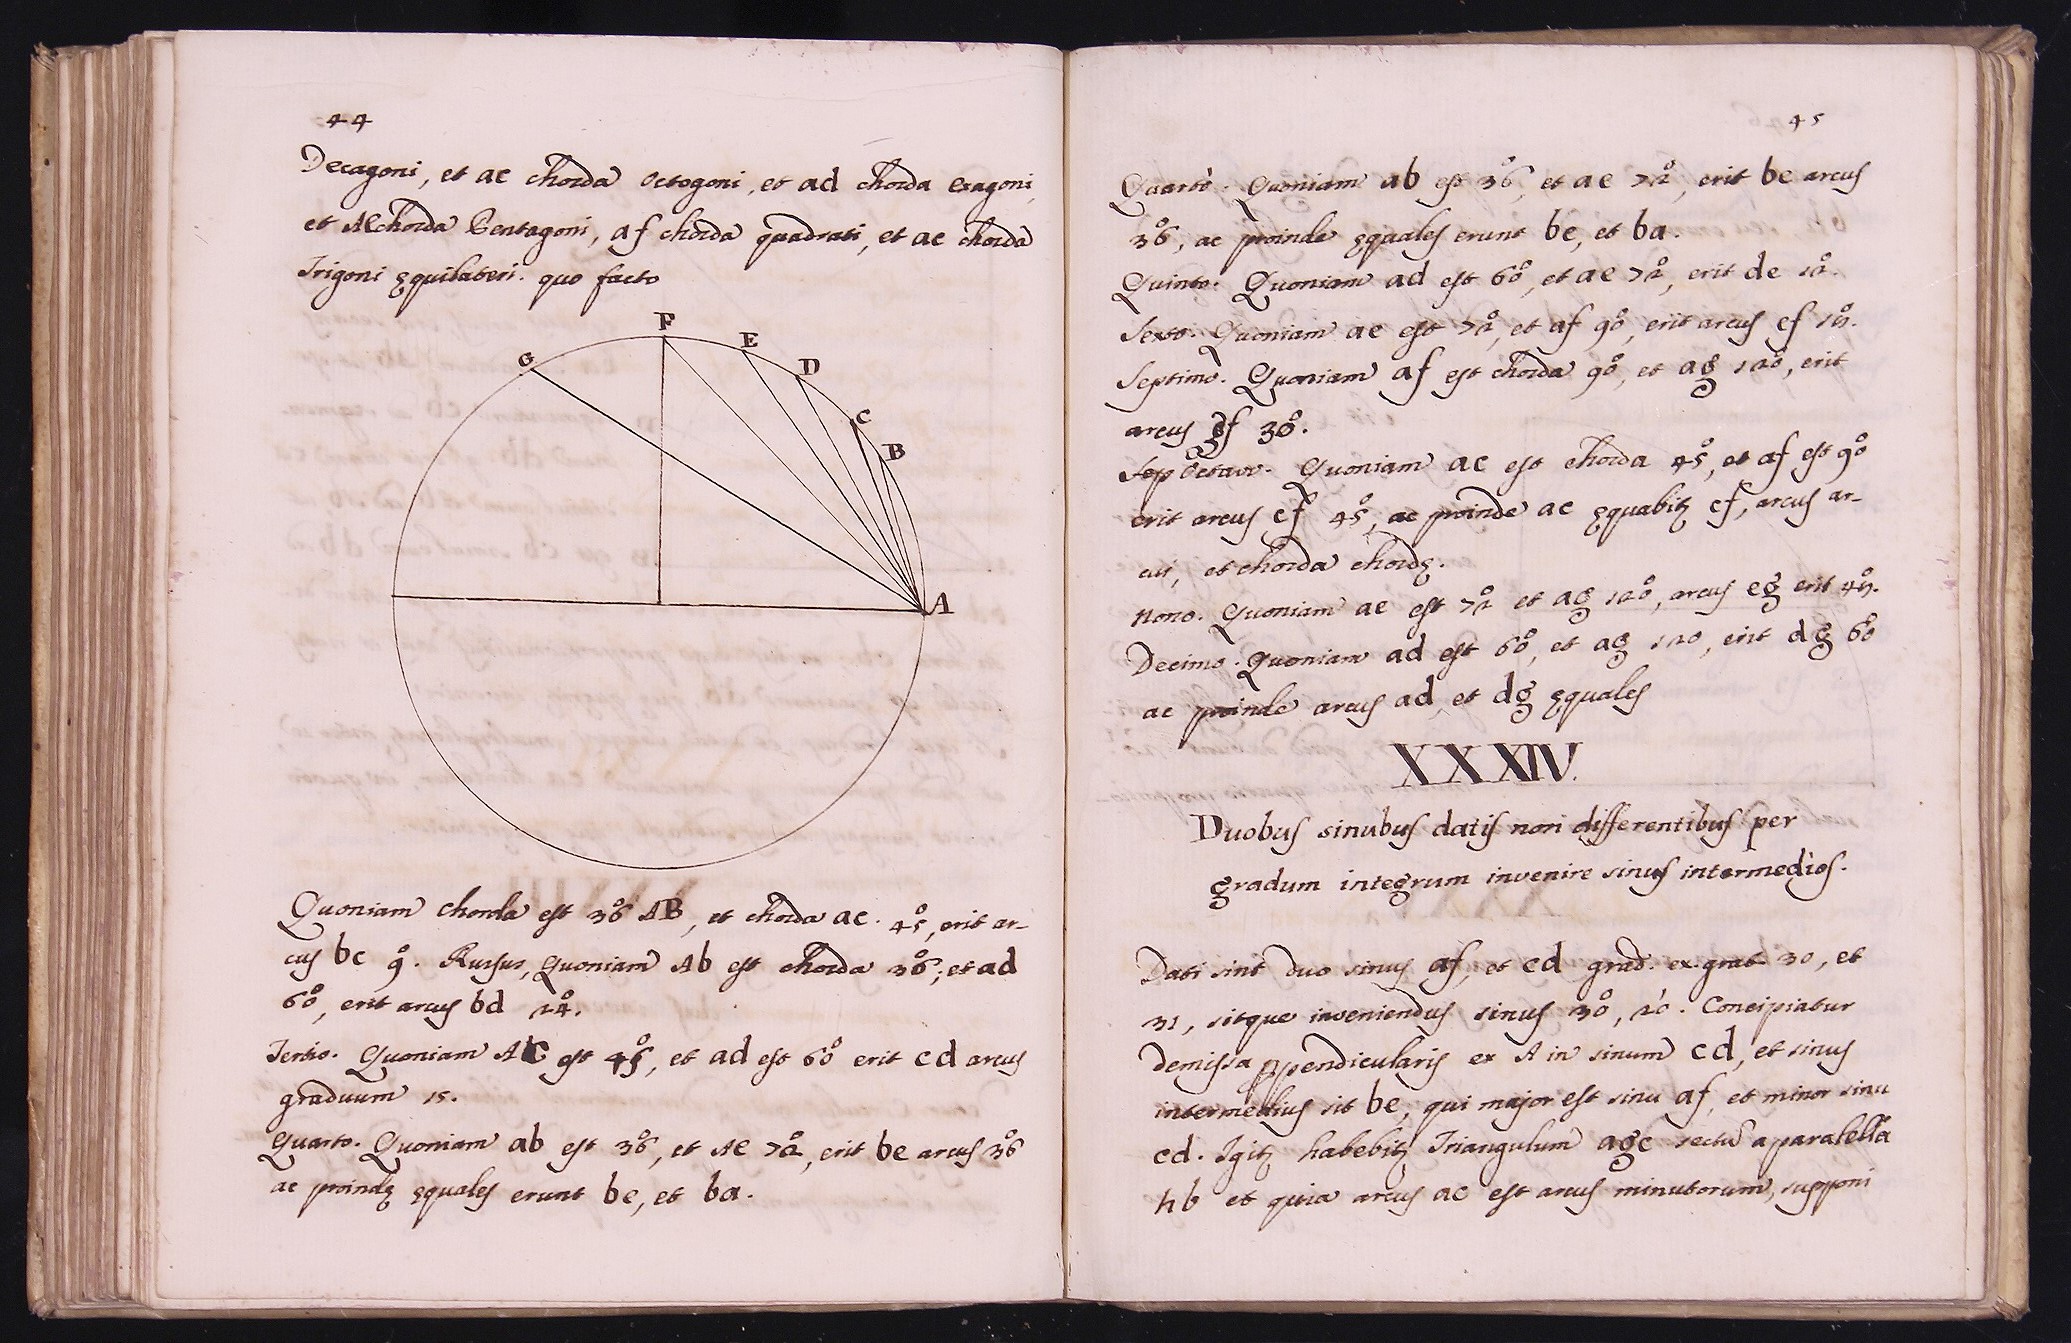 44
Decagoni, et ac chorda octogoni, et ad chorda exagoni,
et AE chorda Pentagoni, af chorda quadrati, et ac chorda
Trigoni ęquilateri. quo facto
F
G
E
D
C
B
A
Quoniam chorda est 36° AB, et chorda ac. 45°, erit ar-
cus bc 9°. Rursus, Quoniam Ab est chorda 36°; et ad
60°, erit arcus bd 24°.
Tertio. Quoniam AC est 45°, et ad est 60° erit cd arcus
graduum 15.
Quarto. Quoniam ab est 36°, et AE 72°, erit be arcus 36°
ac proindę ęquales erunt be, et ba.
45
Quarto. Quoniam ab est 36°, et ae 72°, erit be arcus
36°, ac proinde ęquales erunt be, et ba.
Quinto. Quoniam ad est 60°, et ae 72°, erit de 12°.
Sexto. Quoniam ae est 72°, et af 90°, erit arcus ef 18°.
Septimo. Quoniam af est chorda 90°, et ag 120°, erit
arcus gf 30°.
Sep Octavo. Quoniam ac est chorda 45°, et af est 90°
erit arcus cf 45°, ac proinde ac ęquabitʒ cf, arcus ar-
cui, et chorda chordę.
Nono. Quoniam ae est 72° et ag 120°, arcus eg erit 48°.
Decimo. Quoniam ad est 60°, et ag 120, erit dg 60°
ac proinde arcus ad, et dg ęquales
XXXIV.
Duobus sinubus datis non differentibus per
gradum integrum invenire sinus intermedios.
Dati sint duo sinus af, et cd grad. ex. grat. 30, et
31, sitque inveniendus sinus 30°, 20'. Concipiatur
demissa ꝑpendicularis ex A in sinum cd, et sinus
intermedius sit be, qui major est sinu af, et minor sinu
cd. Igitʒ habebitʒ Triangulum agc sectū a paralella
hb et quia arcus ac est arcus minutorum, supponi